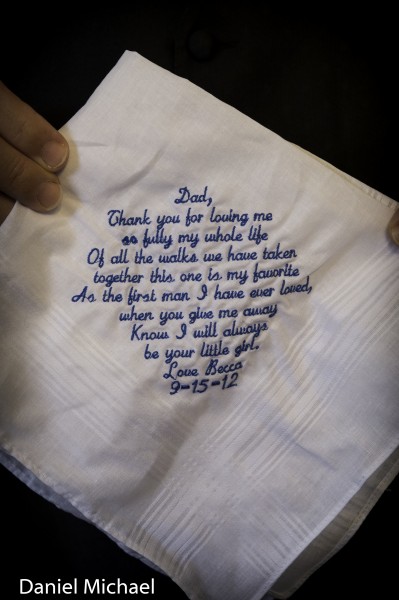 Dad,
Thank you for loving me
so fully my whole life
Of all the walks we have taken
together this one is my favorite
As the first man I have ever loved,
when you give me away
Know I will always
be your little girl.
Love Becca
9-15-12
Daniel Michael